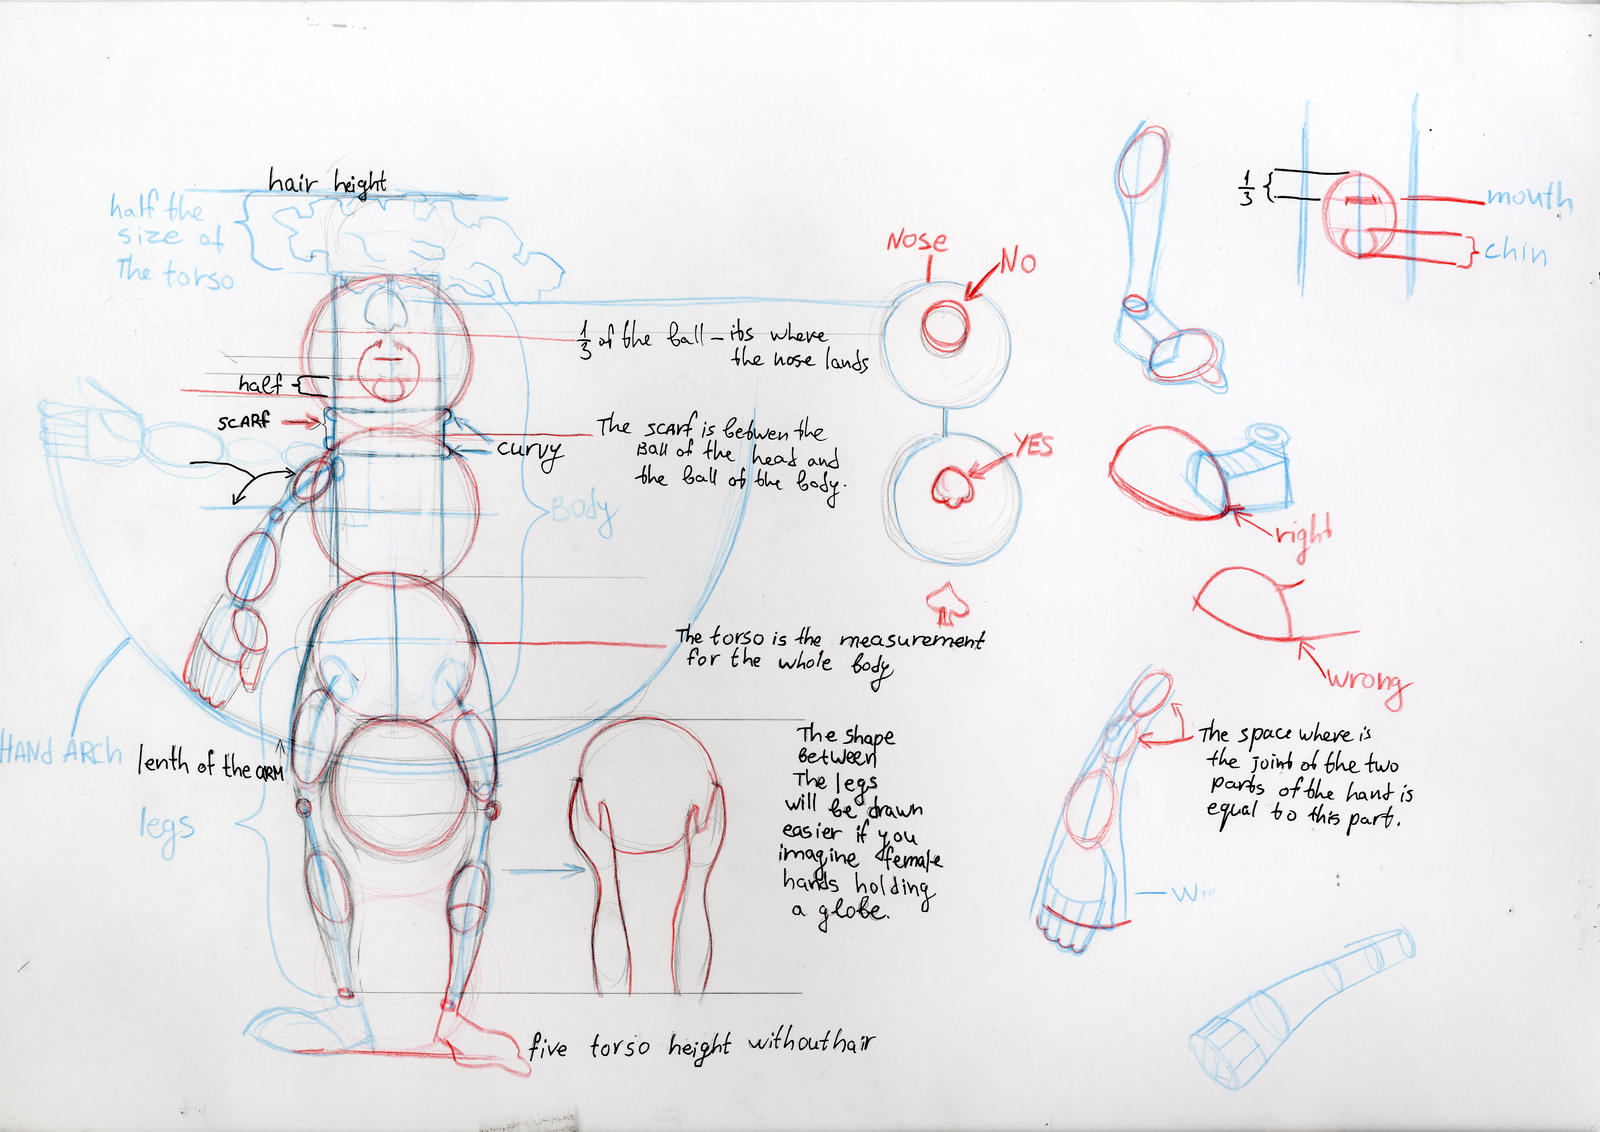 hair height
half the
size of
The torso
Nose
NO
1/3 of the ball – its where
the nose lands
half
SCARf
curvy
The scarf is betwen the
Ball of the head and
the ball of the body.
YES
BODY
The torso is the measurement
for the whole body
HAND ARCH
lenth of the ARM
legs
The shape
between
The legs
will be drawn
easier if you
imagine female
hands holding
a globe.
five torso height without hair
1/3
mouth
chin
right
wrong
The space where is
the joint of the two
parts of the hand is
equal to this part.